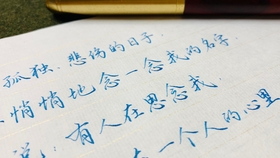 孤独、悲伤的日子
悄悄地念一念我的名字
有人在思念我
在一个人的心里